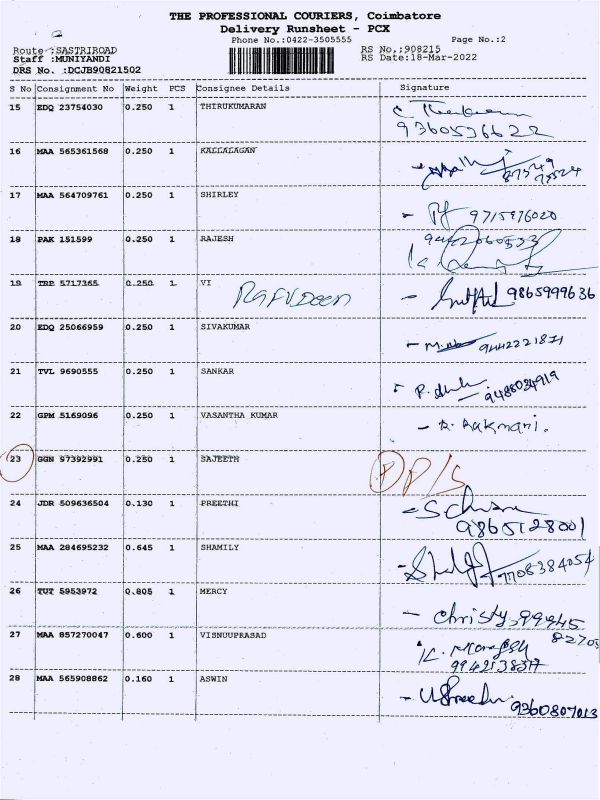 THE PROFESSIONAL COURIERS, Coimbatore
Delivery Runsheet - PCX
Phone No.:0422-3505555 Page No.:2
Route :SASTRIROAD RS No,:908215
Staff :MUNIYANDI RS Date:18-Mar-2022
DRS No. :DCJB90821502
S No Consignment No Weight PCS Consignee Details Signature
15 EDQ 23754030 0.250 1 THIRUKUMARAN
9360536622
16 MAA 565361568 0.250 1 KALLALAGAN
17 MAA 564709761 0.250 1 SHIRLEY
9715976020
18 PAK 151599 0.250 1 RAJESH
9442060553
19 TRP 5717365 0.250 1 VI
9865999636
20 EDQ 25066959 0.250 1 SIVAKUMAR
9442221871
21 TVL 9690555 0.250 1 SANKAR
9488034919
22 GPM 5169096 0.250 1 VASANTHA KUMAR
R. Rukmani.
23 GGN 97392991 0.250 1 SAJEETH
24 JDR 509636504 0.130 1 PREETHI
9865128001
25 MAA 284695232 0.645 1 SHAMILY
7708384054
26 TUT 5953972 0.805 1 MERCY
Christy 99945
82705
27 MAA 857270047 0.600 1 VISNUUPRASAD
28 MAA 565908862 0.160 1 ASWIN
9360807013